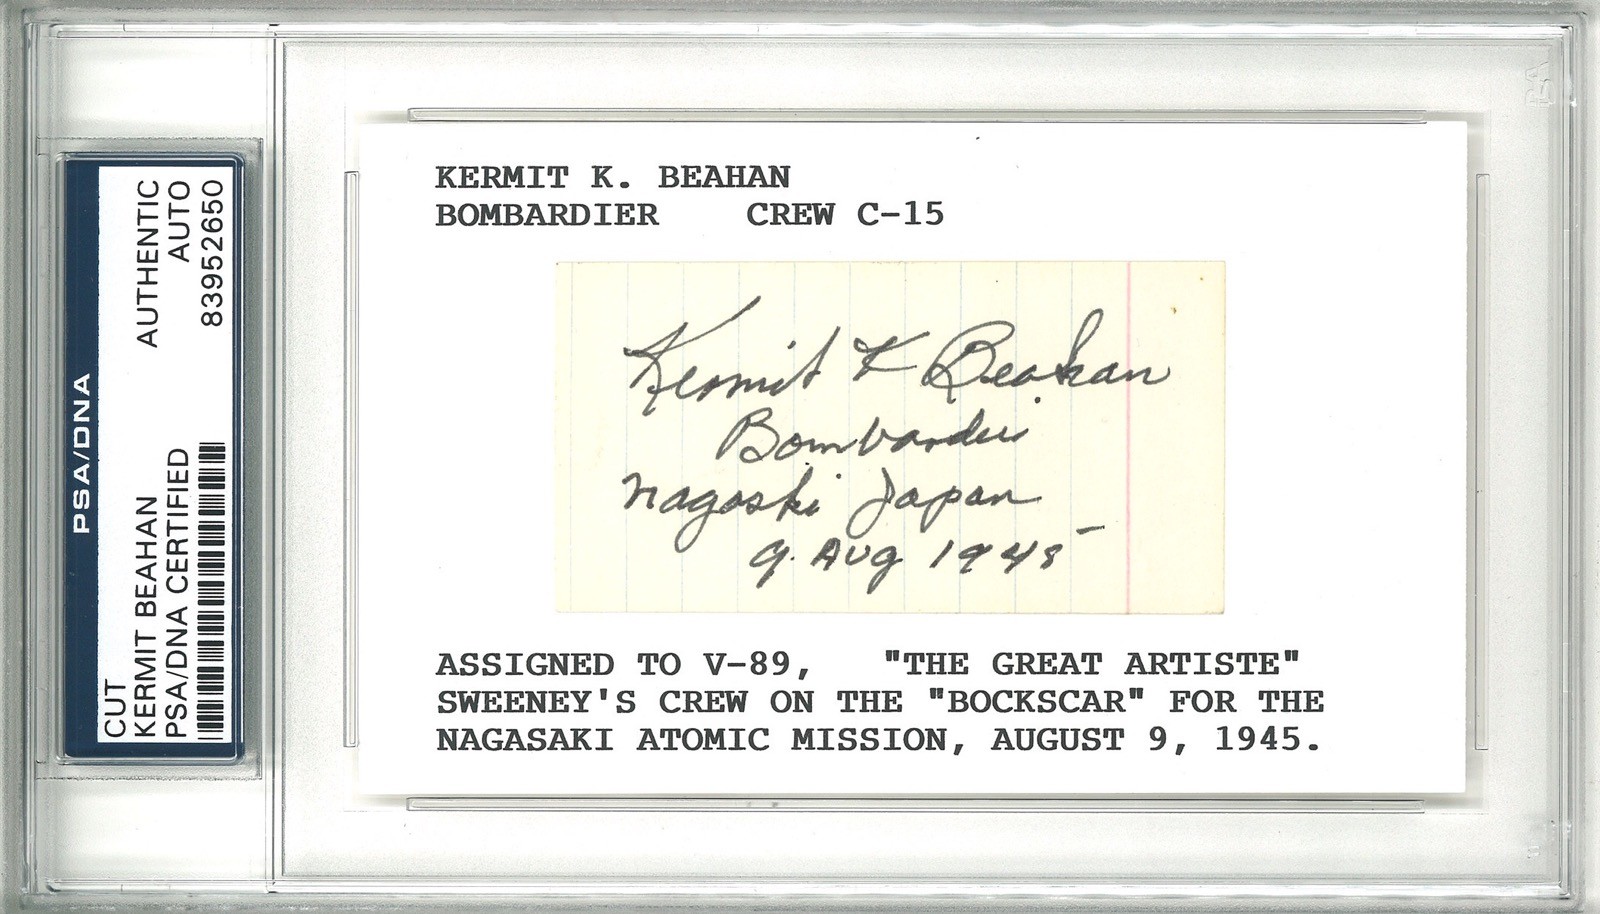 PSA/DNA
CUT
KERMIT BEAHAN
PSA/DNA CERTIFIED
AUTHENTIC
AUTO
83952650
KERMIT K. BEAHAN
BOMBARDIER CREW C-15
Kermit K Beahan
Bombardier
Nagaski Japan
9 Aug 1945
ASSIGNED TO V-89, "THE GREAT ARTISTE"
SWEENEY'S CREW ON THE "BOCKSCAR" FOR THE
NAGASAKI ATOMIC MISSION, AUGUST 9, 1945.